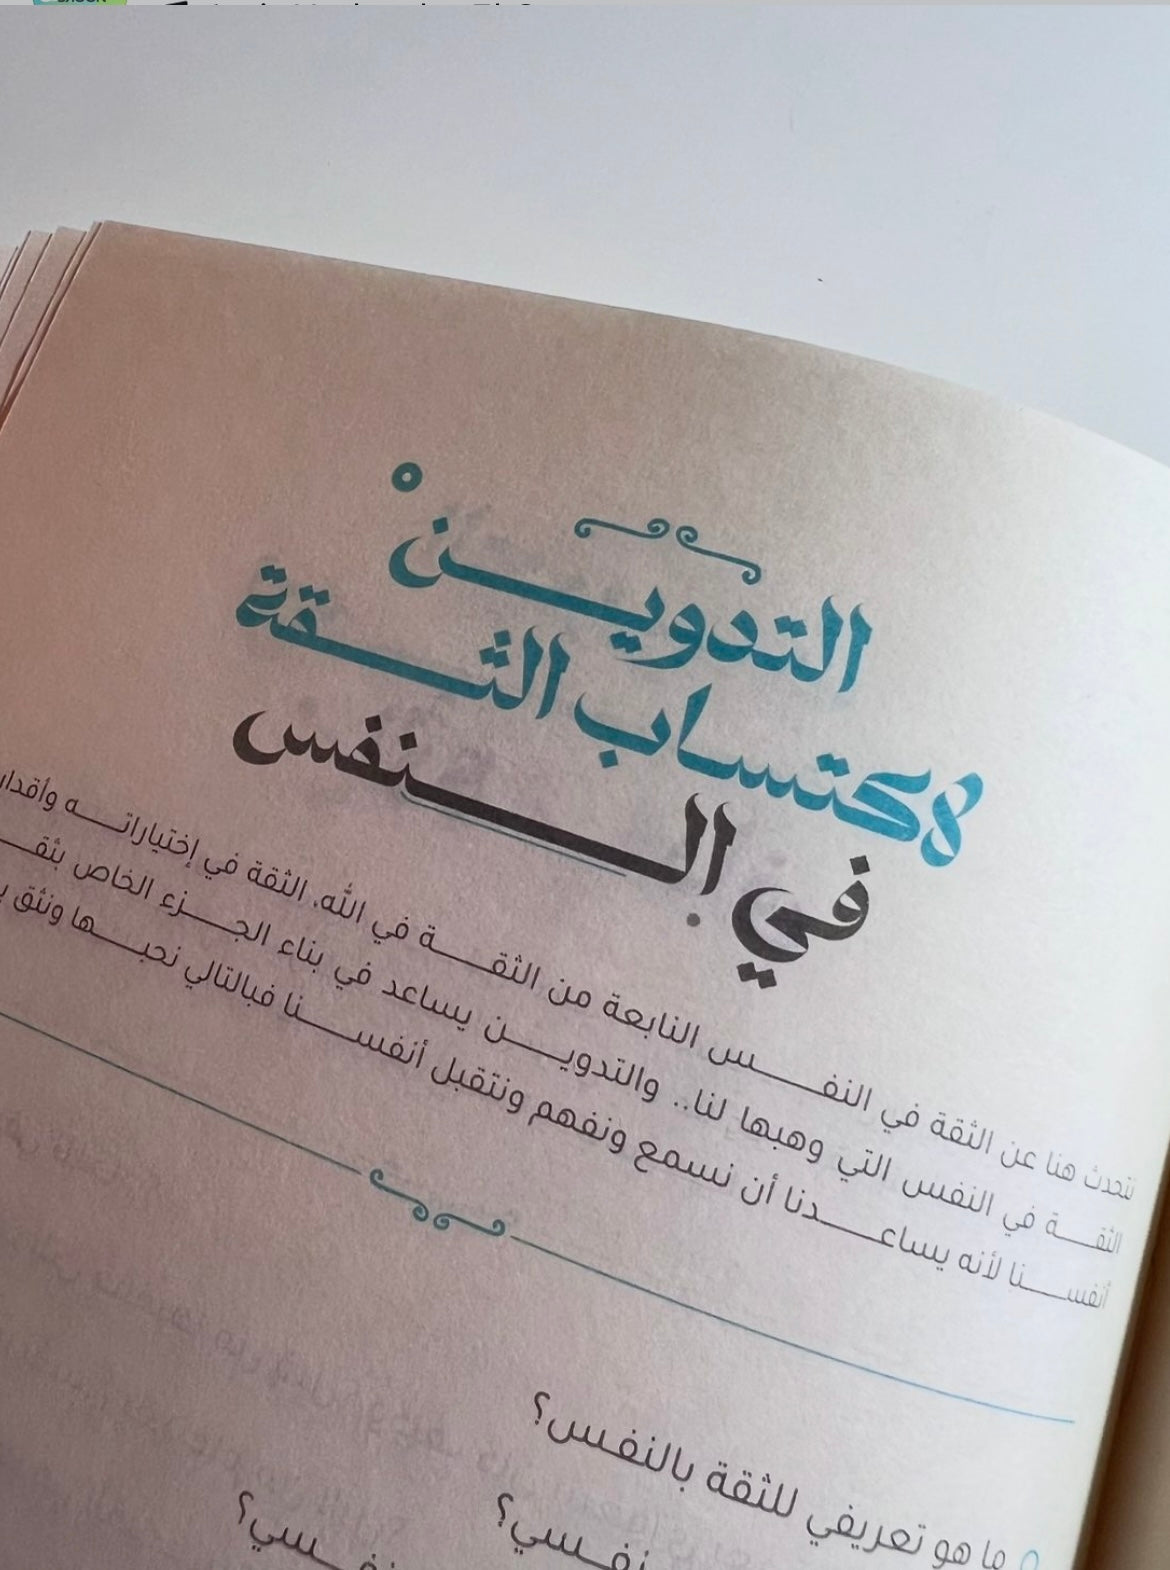 التدوين
لاكتساب الثقة
في النفس
نتحدث هنا عن الثقة في النفس النابعة من الثقة في الله. الثقة في إختياراته وأقدار
الثقة في النفس التي وهبها لنا.. والتدوين يساعد في بناء الجزء الخاص بثقـ
أنفسنا لأنه يساعدنا أن نسمع ونفهم ونتقبل أنفسنا فبالتالي نحبها ونثق
ما هو تعريفي للثقة بالنفس؟
نفسي؟
نفسي؟